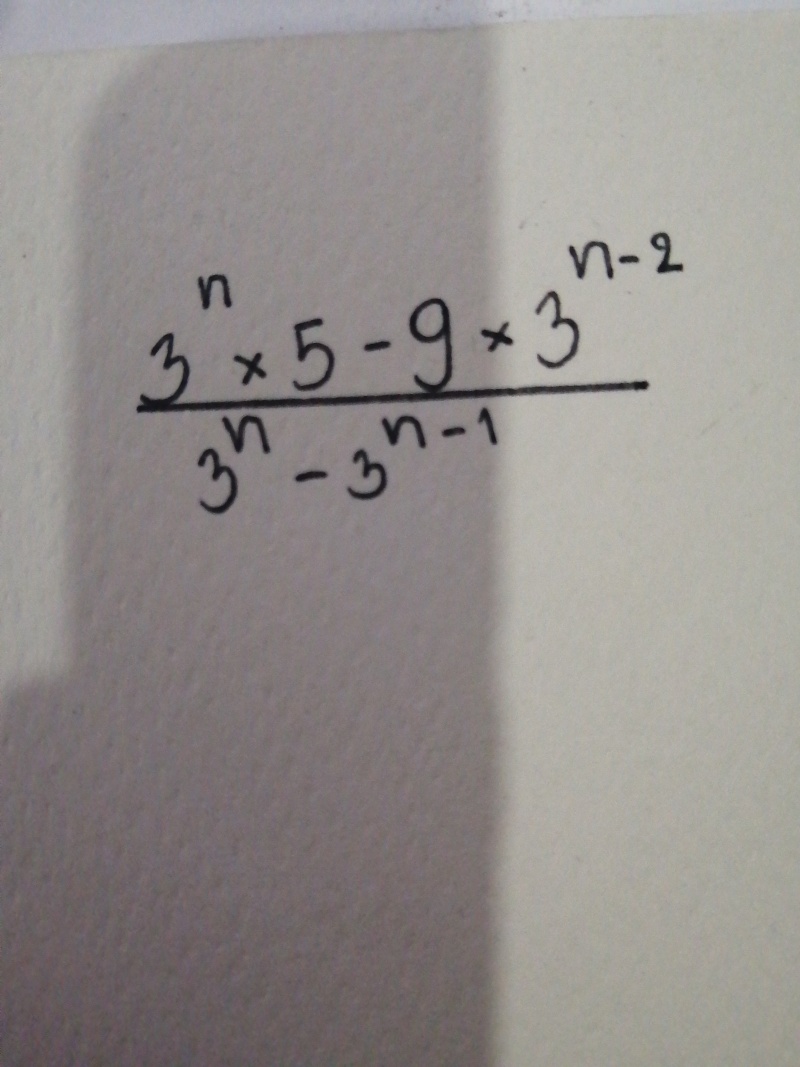 3ⁿ × 5 - 9 × 3ⁿ⁻²
3ⁿ - 3ⁿ⁻¹